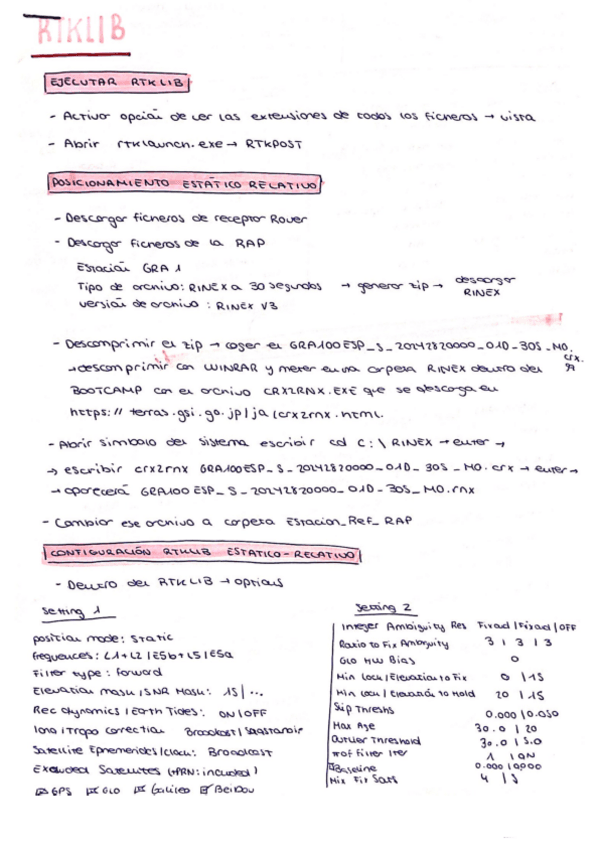 RTKLIB
EJECUTAR RTKLIB
- Activar opción de ver las extensiones de todos los ficheros → vista
- Abrir rtklaunch.exe → RTKPOST
POSICIONAMIENTO ESTÁTICO RELATIVO
- Descargar ficheros de receptor Rover
- Descargar ficheros de la RAP
Estación GRA1
Tipo de archivo: RINEX a 30 segundos → generar zip → descargar RINEX
versión de archivo: RINEX V3
- Descomprimir el zip → coger el GRA100ESP_S_20242820000_01D_30S_MO.crx.gz
→ descomprimir con WINRAR y meter en una carpeta RINEX dentro del
BOOTCAMP con el archivo CRX2RNX.EXE que se descarga en
https://terras.gsi.go.jp/ja/crx2rnx.html.
- Abrir símbolo del sistema escribir cd C:\RINEX → enter →
→ escribir crx2rnx GRA100ESP_S_20242820000_01D_30S_MO.crx → enter →
→ aparecerá GRA100ESP_S_20242820000_01D_30S_MO.rnx
- Cambiar ese archivo a carpeta Estacion_Ref_RAP
CONFIGURACIÓN RTKLIB ESTATICO-RELATIVO
- Dentro del RTKLIB → options
Setting 1
position mode: Static
frequences: L1+L2/E5b+L5/E5a
Filter type: forward
Elevation mask/SNR Mask: 15|...
Rec dynamics/Earth Tides: ON/OFF
Iono/Tropo correction Broadcast/Saastamoin
Satellite Ephemerides/Clock: Broadcast
Excluded Satellites (+PRN: included)
GPS GLO Galileo BeiDou
Setting 2
Integer Ambiguity Res Fixed/Fixed/OFF
Ratio to Fix Ambiguity 3 | 3 | 3
Glo HW Bias 0
Min Lock/Elevation to Fix 0 | 15
Min Lock/Elevación to Hold 20 | 15
Slip Threshs 0.000 | 0.050
Max Age 30.0 | 20
Outlier Threshold 30.0 | 5.0
# of Filter Iter 1 | ON
Baseline 0.000 | 0.000
Mix Fix Sats 4 |